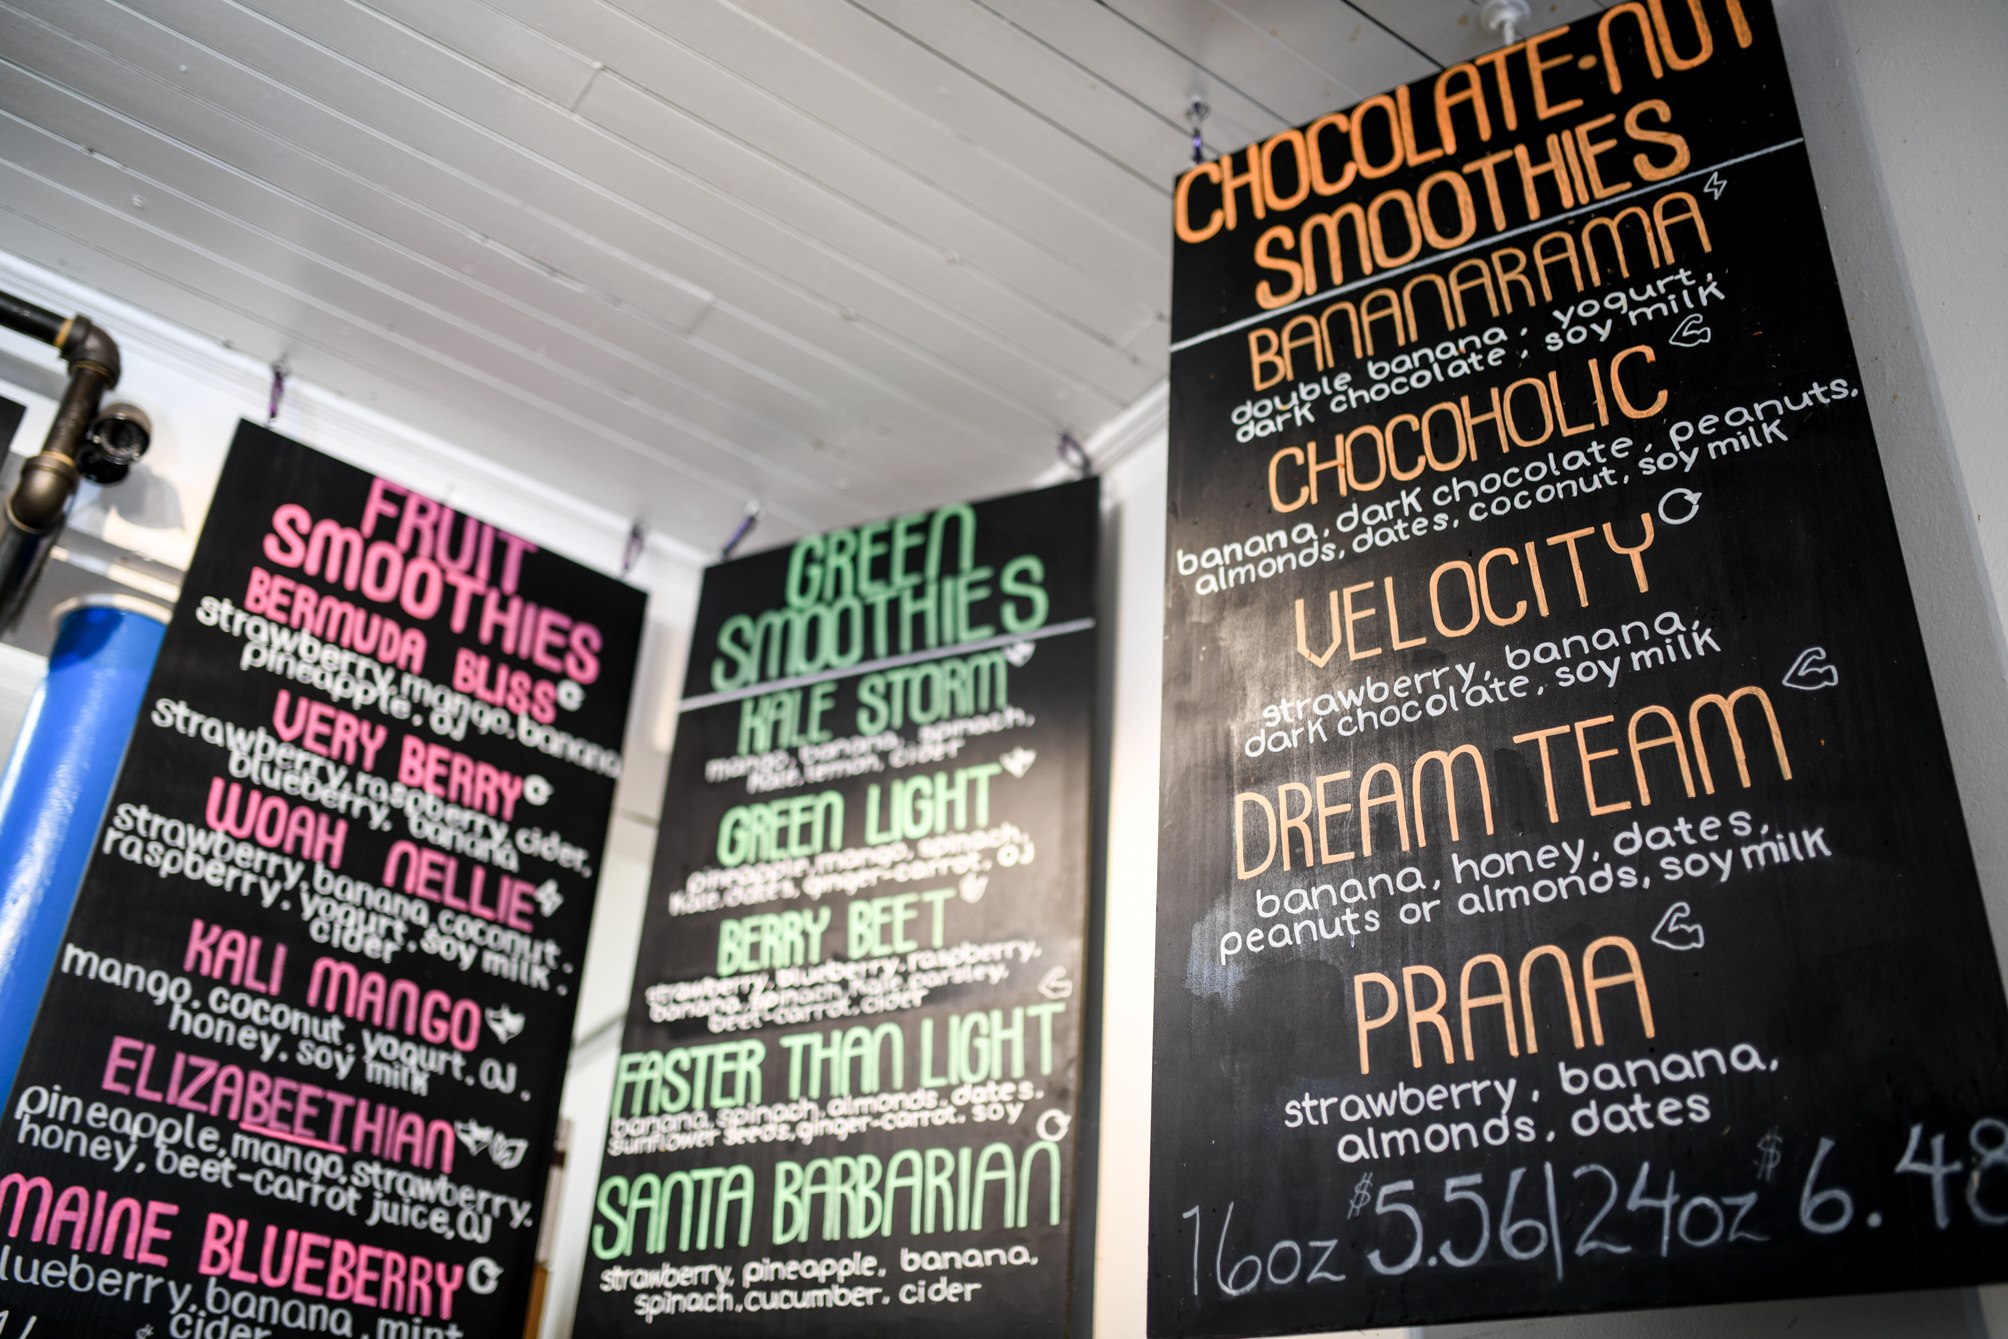 FRUIT
SMOOTHIES
BERMUDA BLISS
strawberry, mango, banana
pineapple, OJ
VERY BERRY
strawberry, raspberry, cider,
blueberry, banana
WOAH NELLIE
strawberry, banana, coconut,
raspberry, yogurt, soy milk,
cider
KALI MANGO
mango, coconut, yogurt, OJ,
honey, soy milk
ELIZABEETHIAN
pineapple, mango, strawberry,
honey, beet-carrot juice, OJ
MAINE BLUEBERRY
lueberry, banana, mint
cider
GREEN
SMOOTHIES
KALE STORM
mango, banana, spinach,
kale, lemon, cider
GREEN LIGHT
pineapple, mango, spinach,
kale, dates, ginger-carrot, OJ
BERRY BEET
strawberry, blueberry, raspberry,
banana, spinach, kale, parsley,
beet-carrot, cider
FASTER THAN LIGHT
banana, spinach, almonds, dates,
sunflower seeds, ginger-carrot, soy
SANTA BARBARIAN
strawberry, pineapple, banana,
spinach, cucumber, cider
CHOCOLATE·NUT
SMOOTHIES
BANANARAMA
double banana, yogurt,
dark chocolate, soy milk
CHOCOHOLIC
banana, dark chocolate, peanuts,
almonds, dates, coconut, soy milk
VELOCITY
strawberry, banana,
dark chocolate, soy milk
DREAM TEAM
banana, honey, dates,
peanuts or almonds, soy milk
PRANA
strawberry, banana,
almonds, dates
16oz $5.56|24oz $6.48